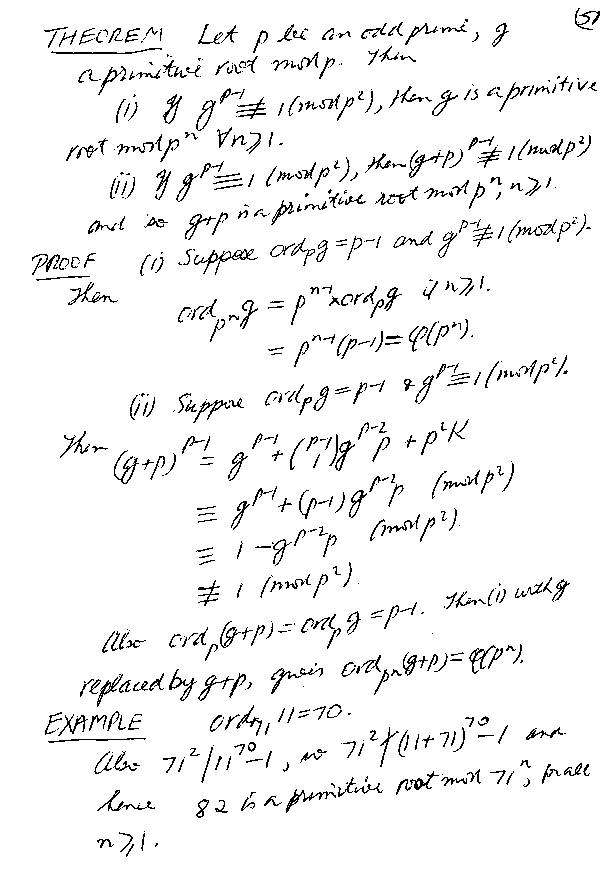 (51
THEOREM Let p be an odd prime, g
a primitive root mod p. Then
(i) If g^{p-1} ≢ 1 (mod p²), then g is a primitive
root mod pⁿ ∀n≥1.
(ii) If g^{p-1} ≡ 1 (mod p²), then (g+p)^{p-1} ≢ 1 (mod p²)
and so g+p is a primitive root mod pⁿ, n≥1.
PROOF (i) Suppose ord_p g = p-1 and g^{p-1} ≢ 1 (mod p²).
Then
ord_{pⁿ} g = p^{n-1} × ord_p g if n≥1.
= p^{n-1}(p-1) = φ(pⁿ).
(ii) Suppose ord_p g = p-1 & g^{p-1} ≡ 1 (mod p²).
Then (g+p)^{p-1} = g^{p-1} + (p-1 1) g^{p-2} p + p²K
≡ g^{p-1} + (p-1) g^{p-2} p (mod p²)
≡ 1 - g^{p-2} p (mod p²).
≢ 1 (mod p²).
Also ord_p(g+p) = ord_p g = p-1. Then (i) with g
replaced by g+p, gives ord_{pⁿ}(g+p) = φ(pⁿ).
EXAMPLE ord_{71} 11 = 70.
Also 71² | 11^{70} - 1, so 71² ∤ (11+71)^{70} - 1 and
hence 82 is a primitive root mod 71ⁿ, for all
n≥1.